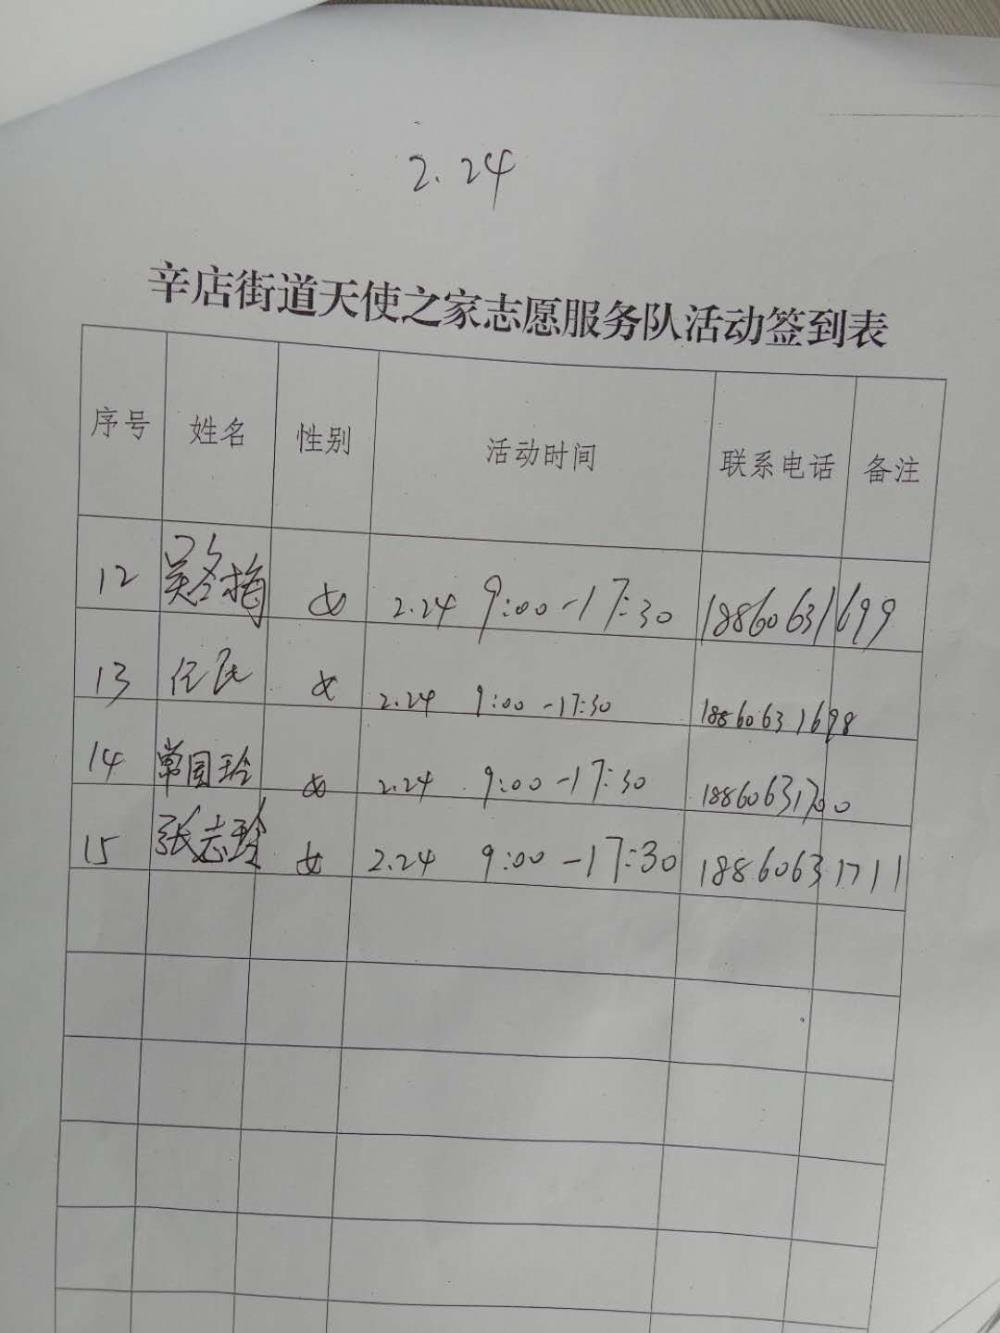 2.24
辛店街道天使之家志愿服务队活动签到表
序号 姓名 性别 活动时间 联系电话 备注
12 吴冬梅 女 2.24 9:00-17:30 18860631699
13 任民 女 2.24 9:00-17:30 18860631698
14 常国玲 女 2.24 9:00-17:30 18860631700
15 张志玲 女 2.24 9:00-17:30 18860631711